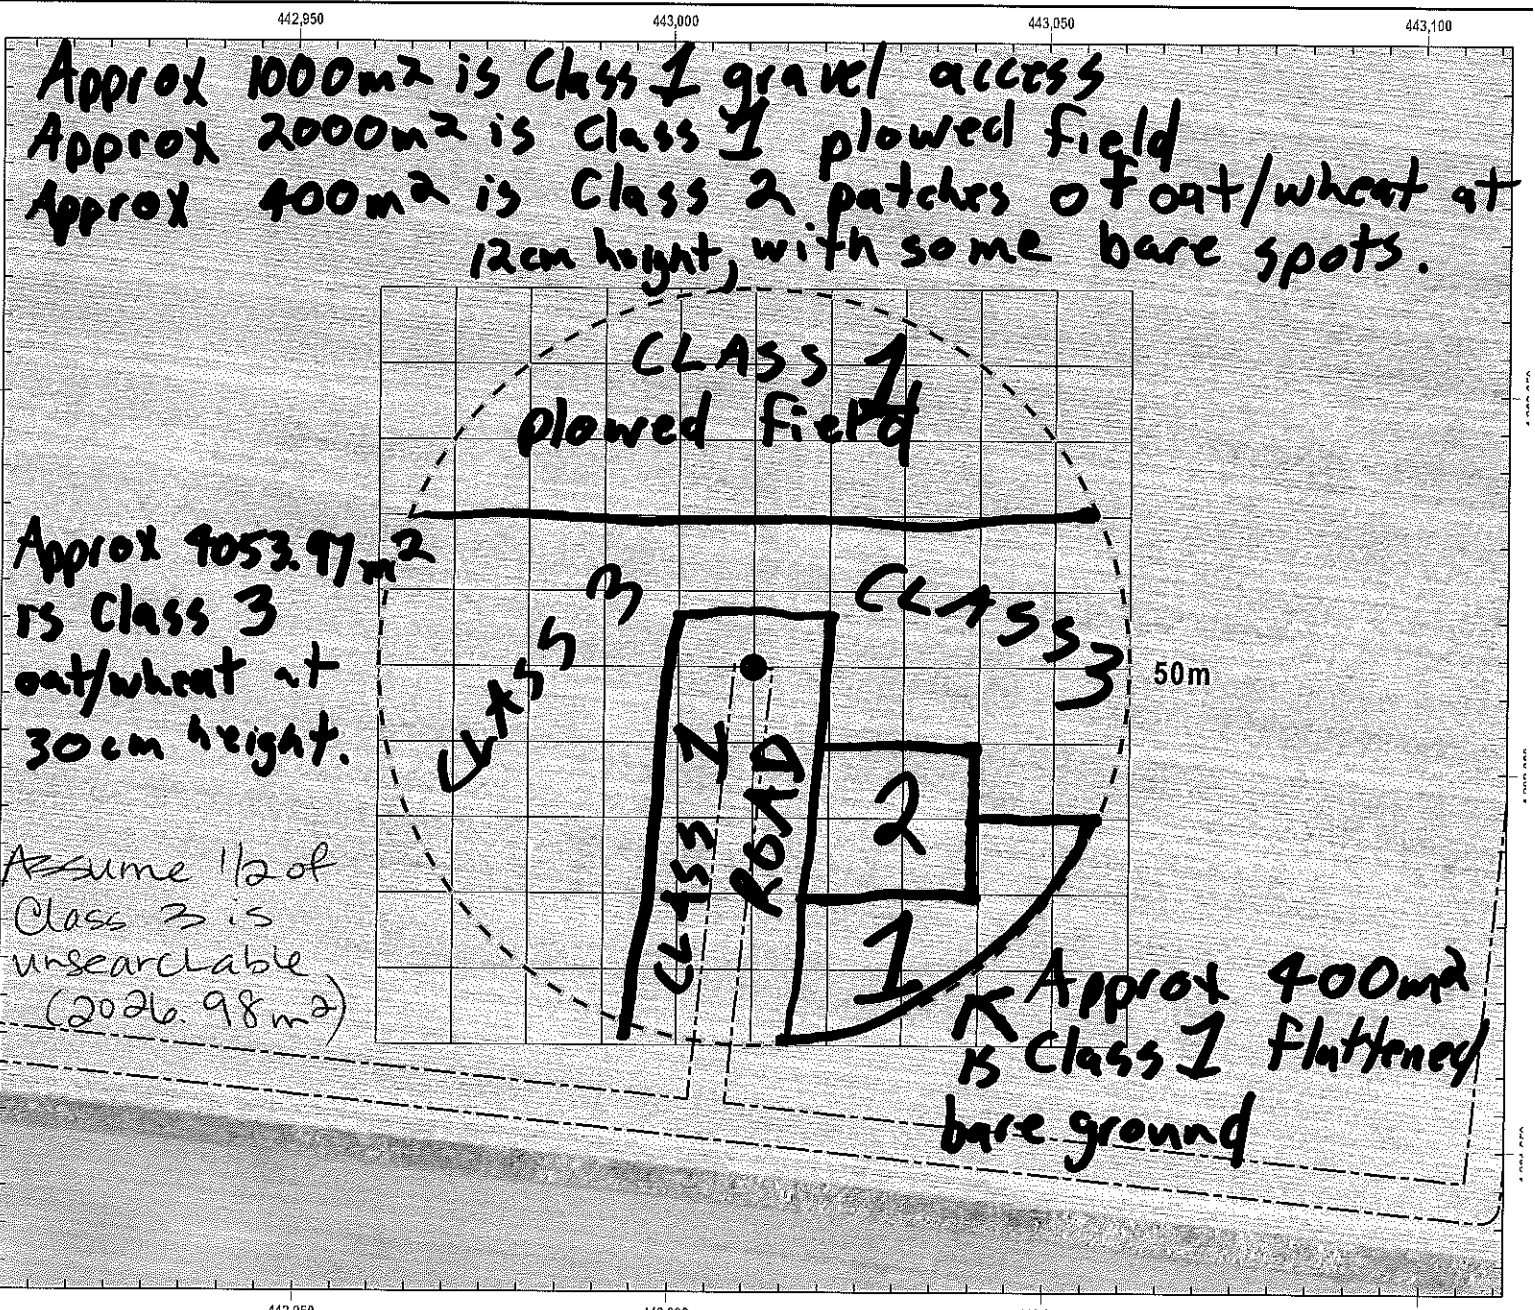 442,950 443,000 443,050 443,100
Approx 1000m² is Class 1 gravel access
Approx 2000m² is Class 1 plowed field
Approx 400m² is Class 2 patches of oat/wheat at
12cm height, with some bare spots.
CLASS 1
plowed field
Approx 4053.97m²
is Class 3
oat/wheat at
30cm height.
CLASS 3
CLASS 3
50m
CLASS 1
ROAD
2
1
Assume 1/2 of
Class 3 is
unsearchable
(2026.98m²)
Approx 400m²
is Class 1 flattened
bare ground